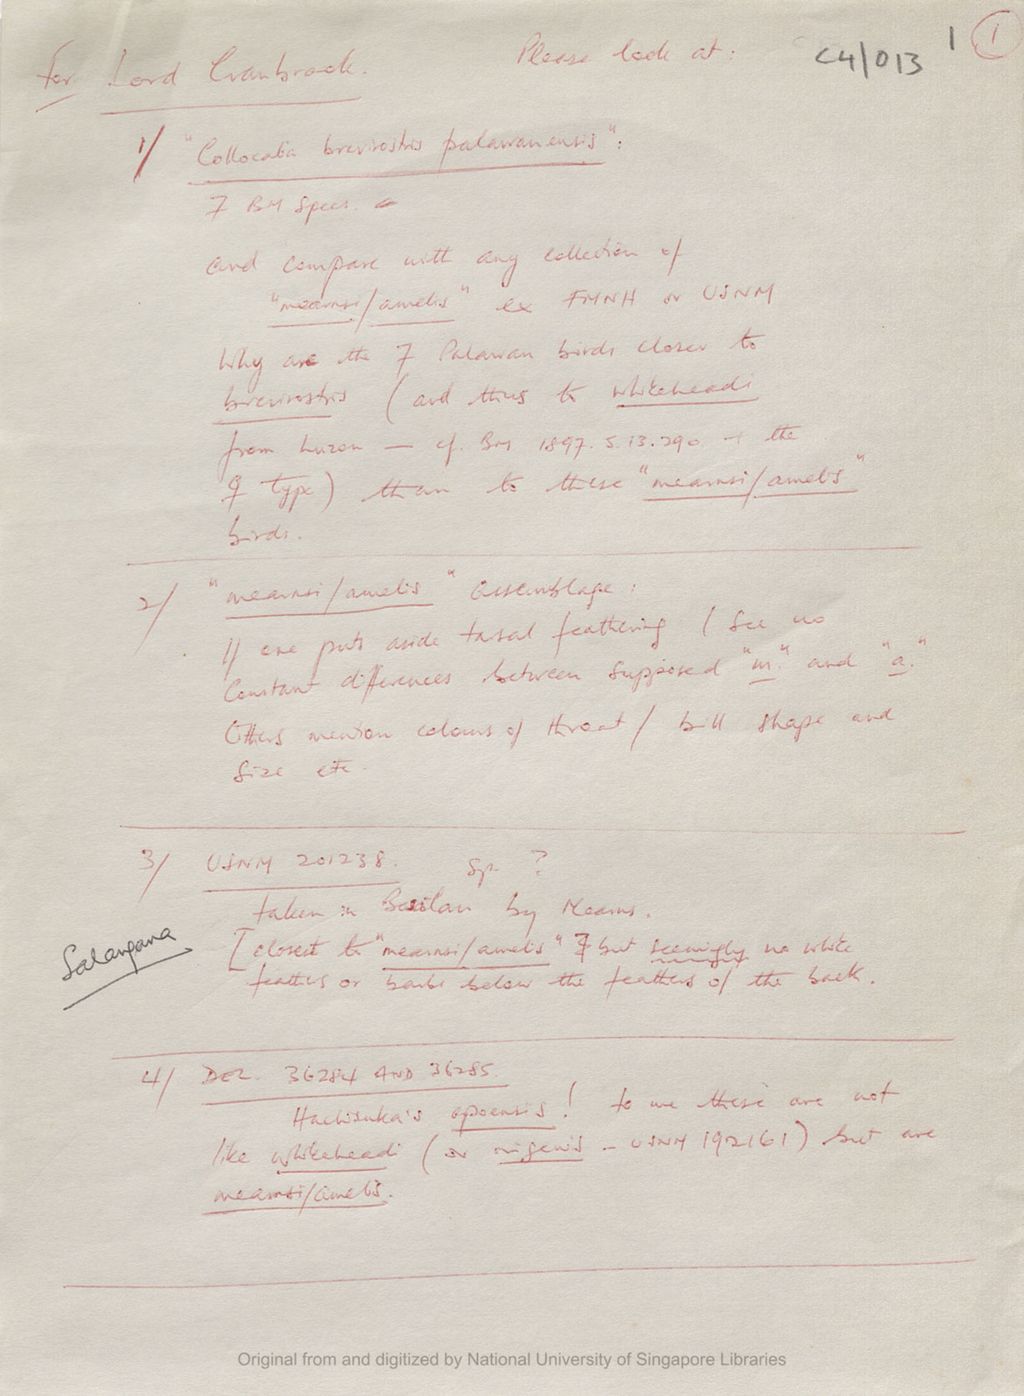 for Lord Cranbrook. Please look at: C4/013 1 1
1/ "Collocalia brevirostris palawanensis":
7 BM Specs.
and compare with any collection of
"mearnsi/amelis" ex FMNH or USNM
Why are the 7 Palawan birds closer to
brevirostris (and thus to whiteheadi
from Luzon – cf. BM 1897.5.13.290 – the
♀ type) than to these "mearnsi/amelis"
birds.
2/ "mearnsi/amelis" assemblage:
If one puts aside tarsal feathering I see no
constant differences between supposed "m." and "a."
Others mention colours of throat/ bill shape and
size etc.
3/ USNM 201238. Sp. ?
taken in Basilan by Mearns.
Salangana
[closest to "mearnsi/amelis"] but seemingly no white
feathers or barbs below the feathers of the back.
4/ DEL. 36284 AND 36285.
Hachisuka's apoensis! to me these are not
like whiteheadi (or origenis – USNM 192161) but are
mearnsi/amelis.
Original from and digitized by National University of Singapore Libraries